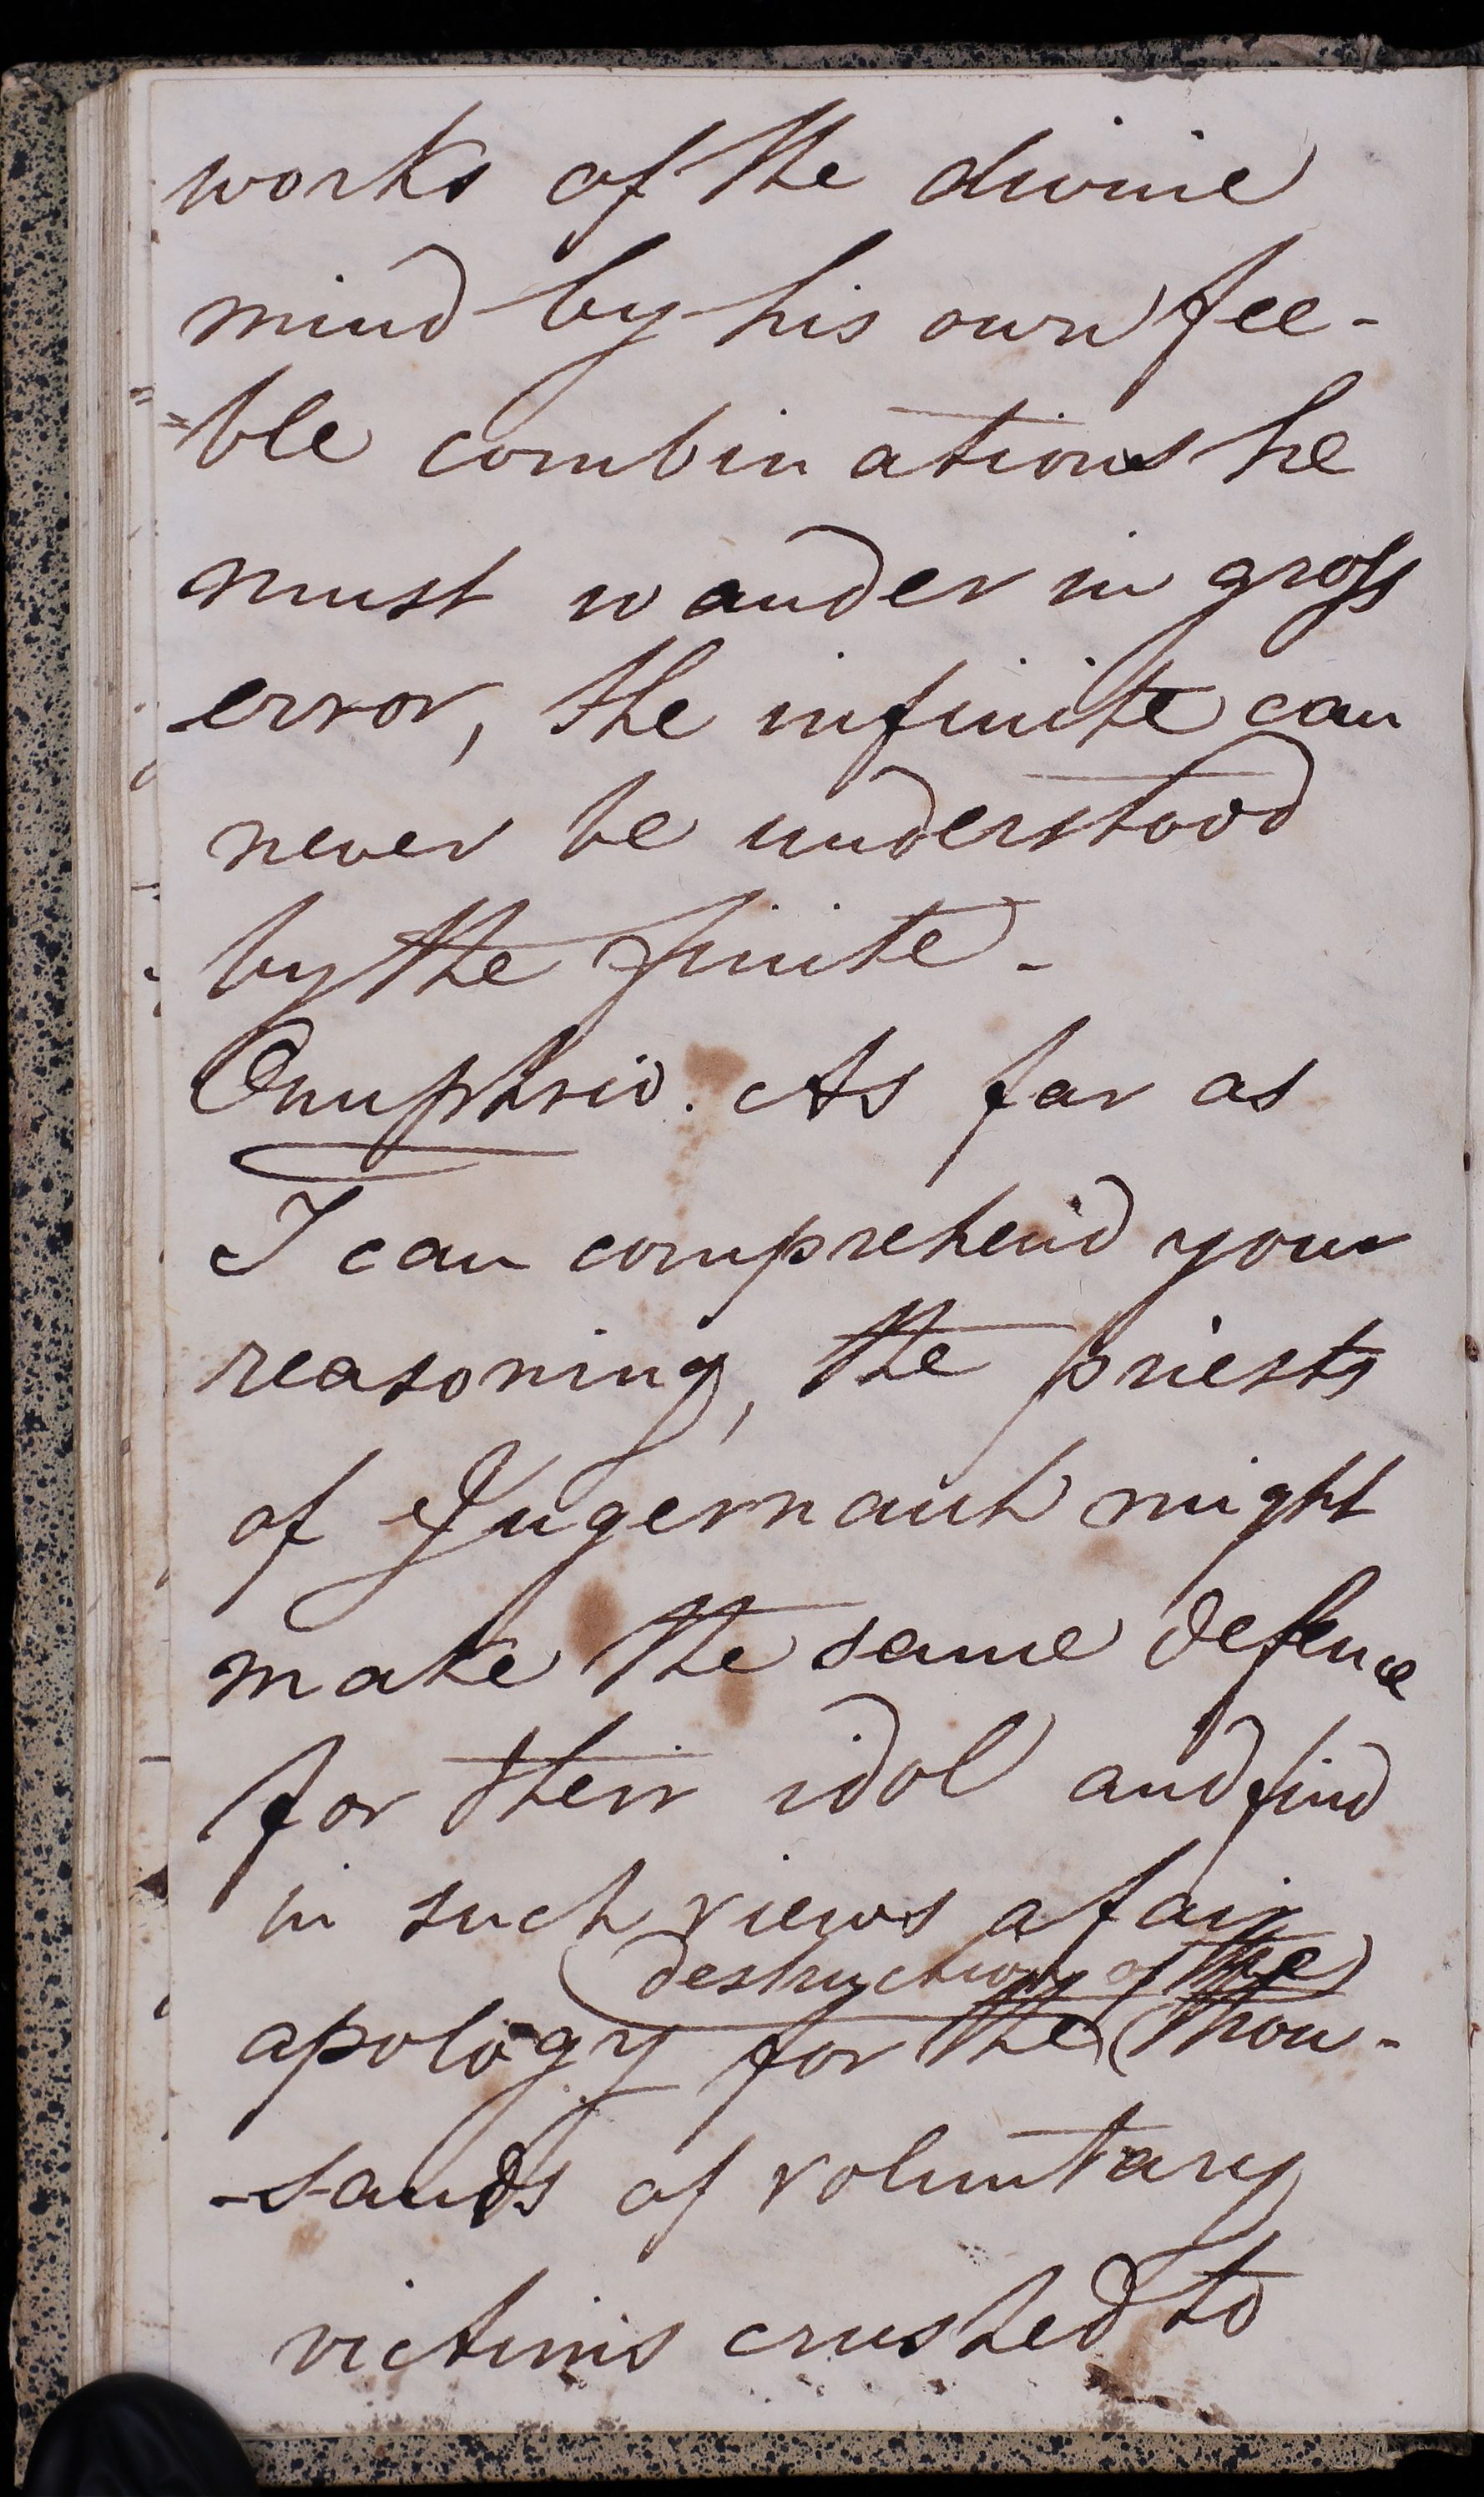 works of the divine
mind by his own fee-
=ble combinations he
must wander in gross
error, the infinite can
never be understood
by the finite -
Onuphrio. As far as
I can comprehend your
reasoning, the priests
of Jugernaut might
make the same defence
for their idol and find
in such views a fair
destruction of the
apology for the thou-
-sands of voluntary
victims crushed to